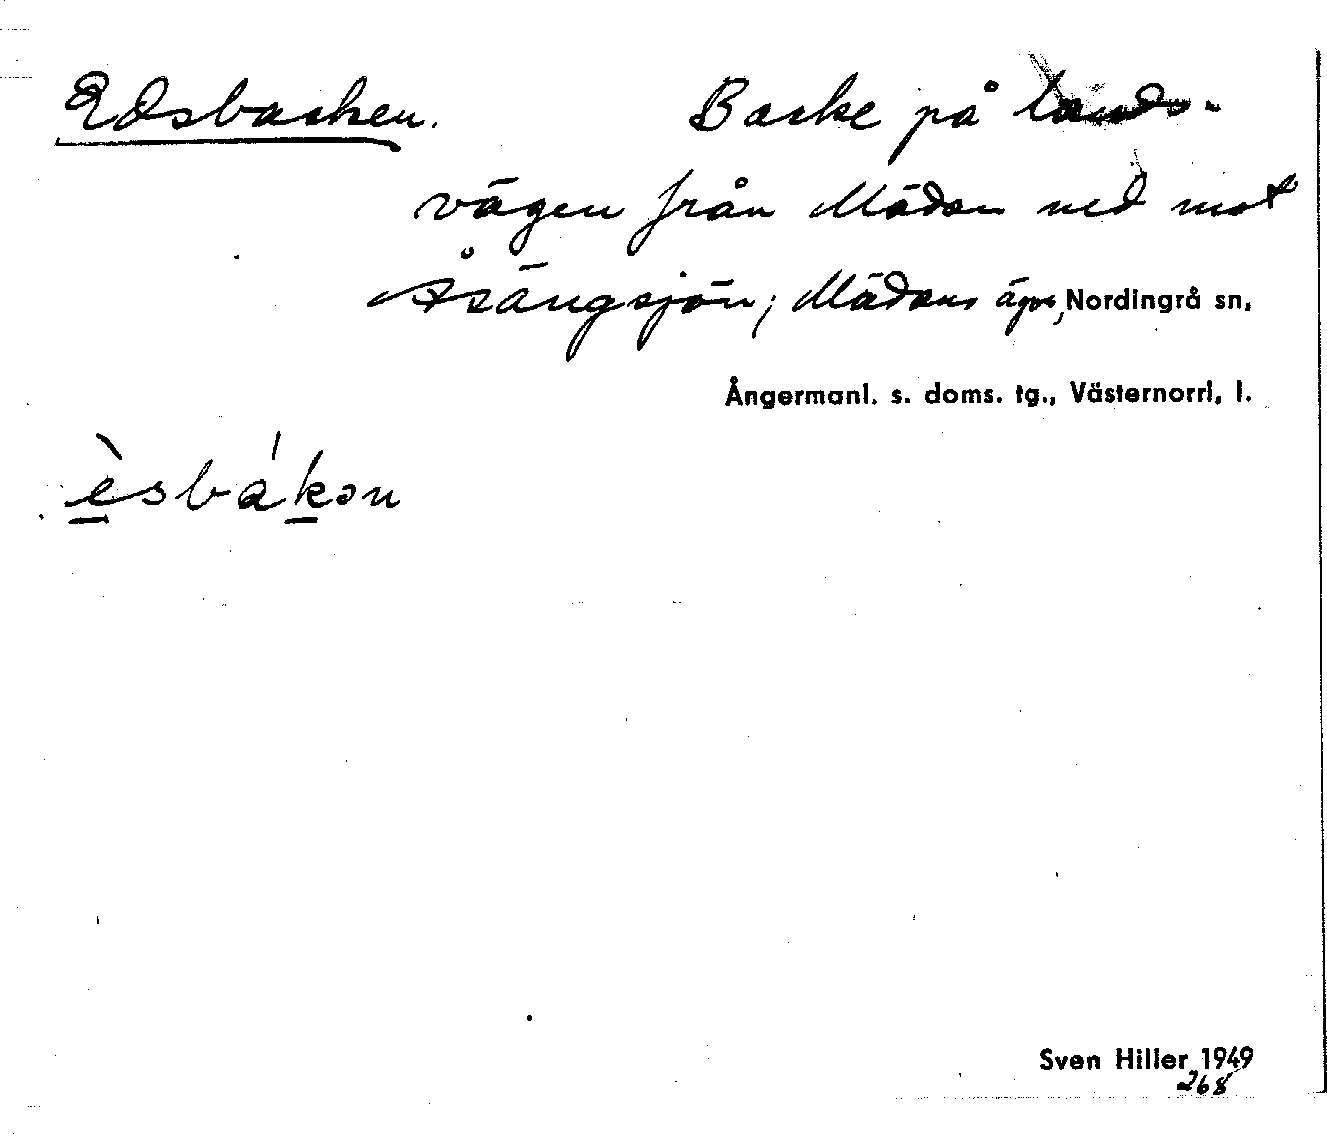 Edsbacken. Backe på lands-
vägen från Mädan ned mot
Åsängsjön, Mädans ägor, Nordingrå sn,
Ångermanl. s. doms. tg., Västernorrl. l.
èsbákən
Sven Hiller 1949
268